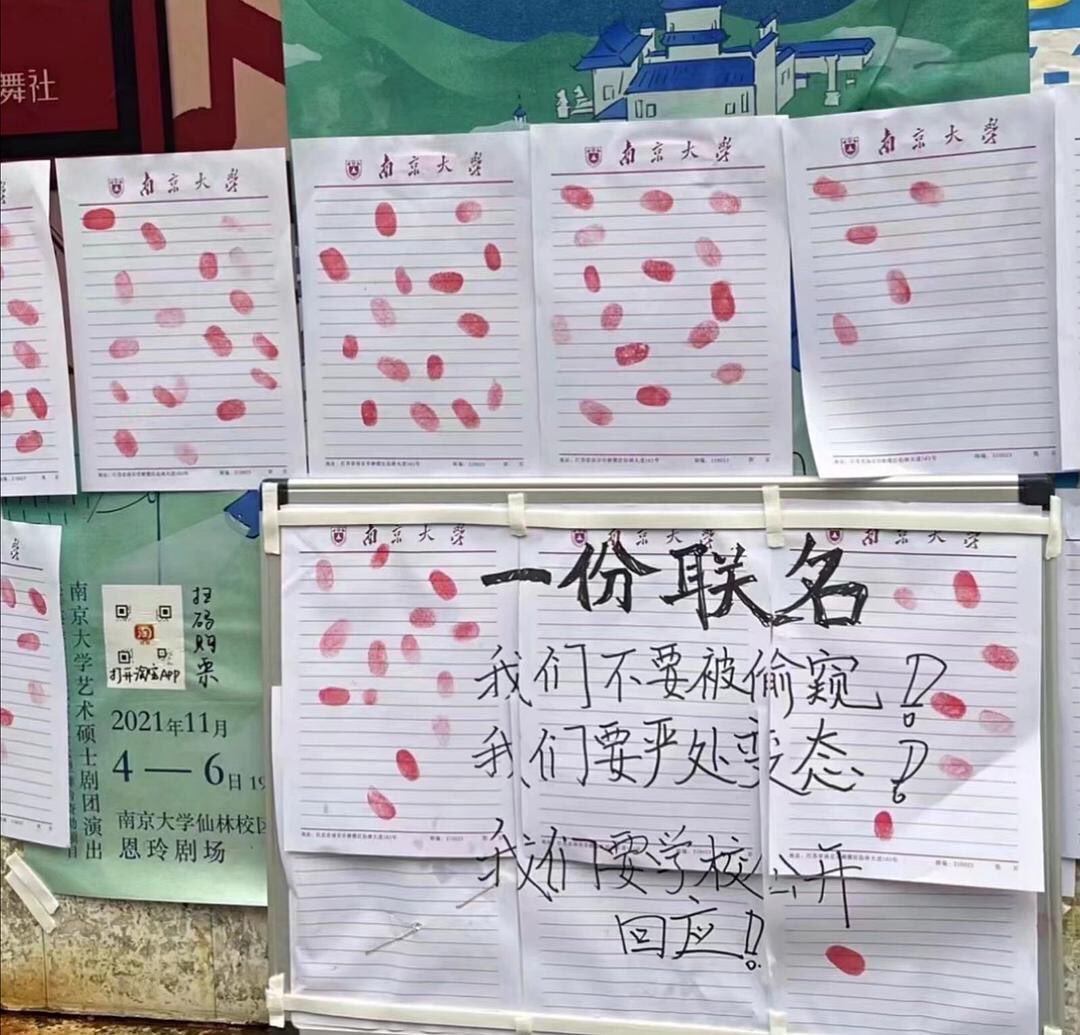 舞社
南京大学
南京大学
南京大学
南京大学
南京大学
南京大学
南京大学
一份联名
我们不要被偷窥！
我们要严处变态！
我们要学校公开
回应！！
扫码购票
打开淘宝APP
南京大学艺术硕士剧团演出
2021年11月
4—6日 19
南京大学仙林校区
恩玲剧场